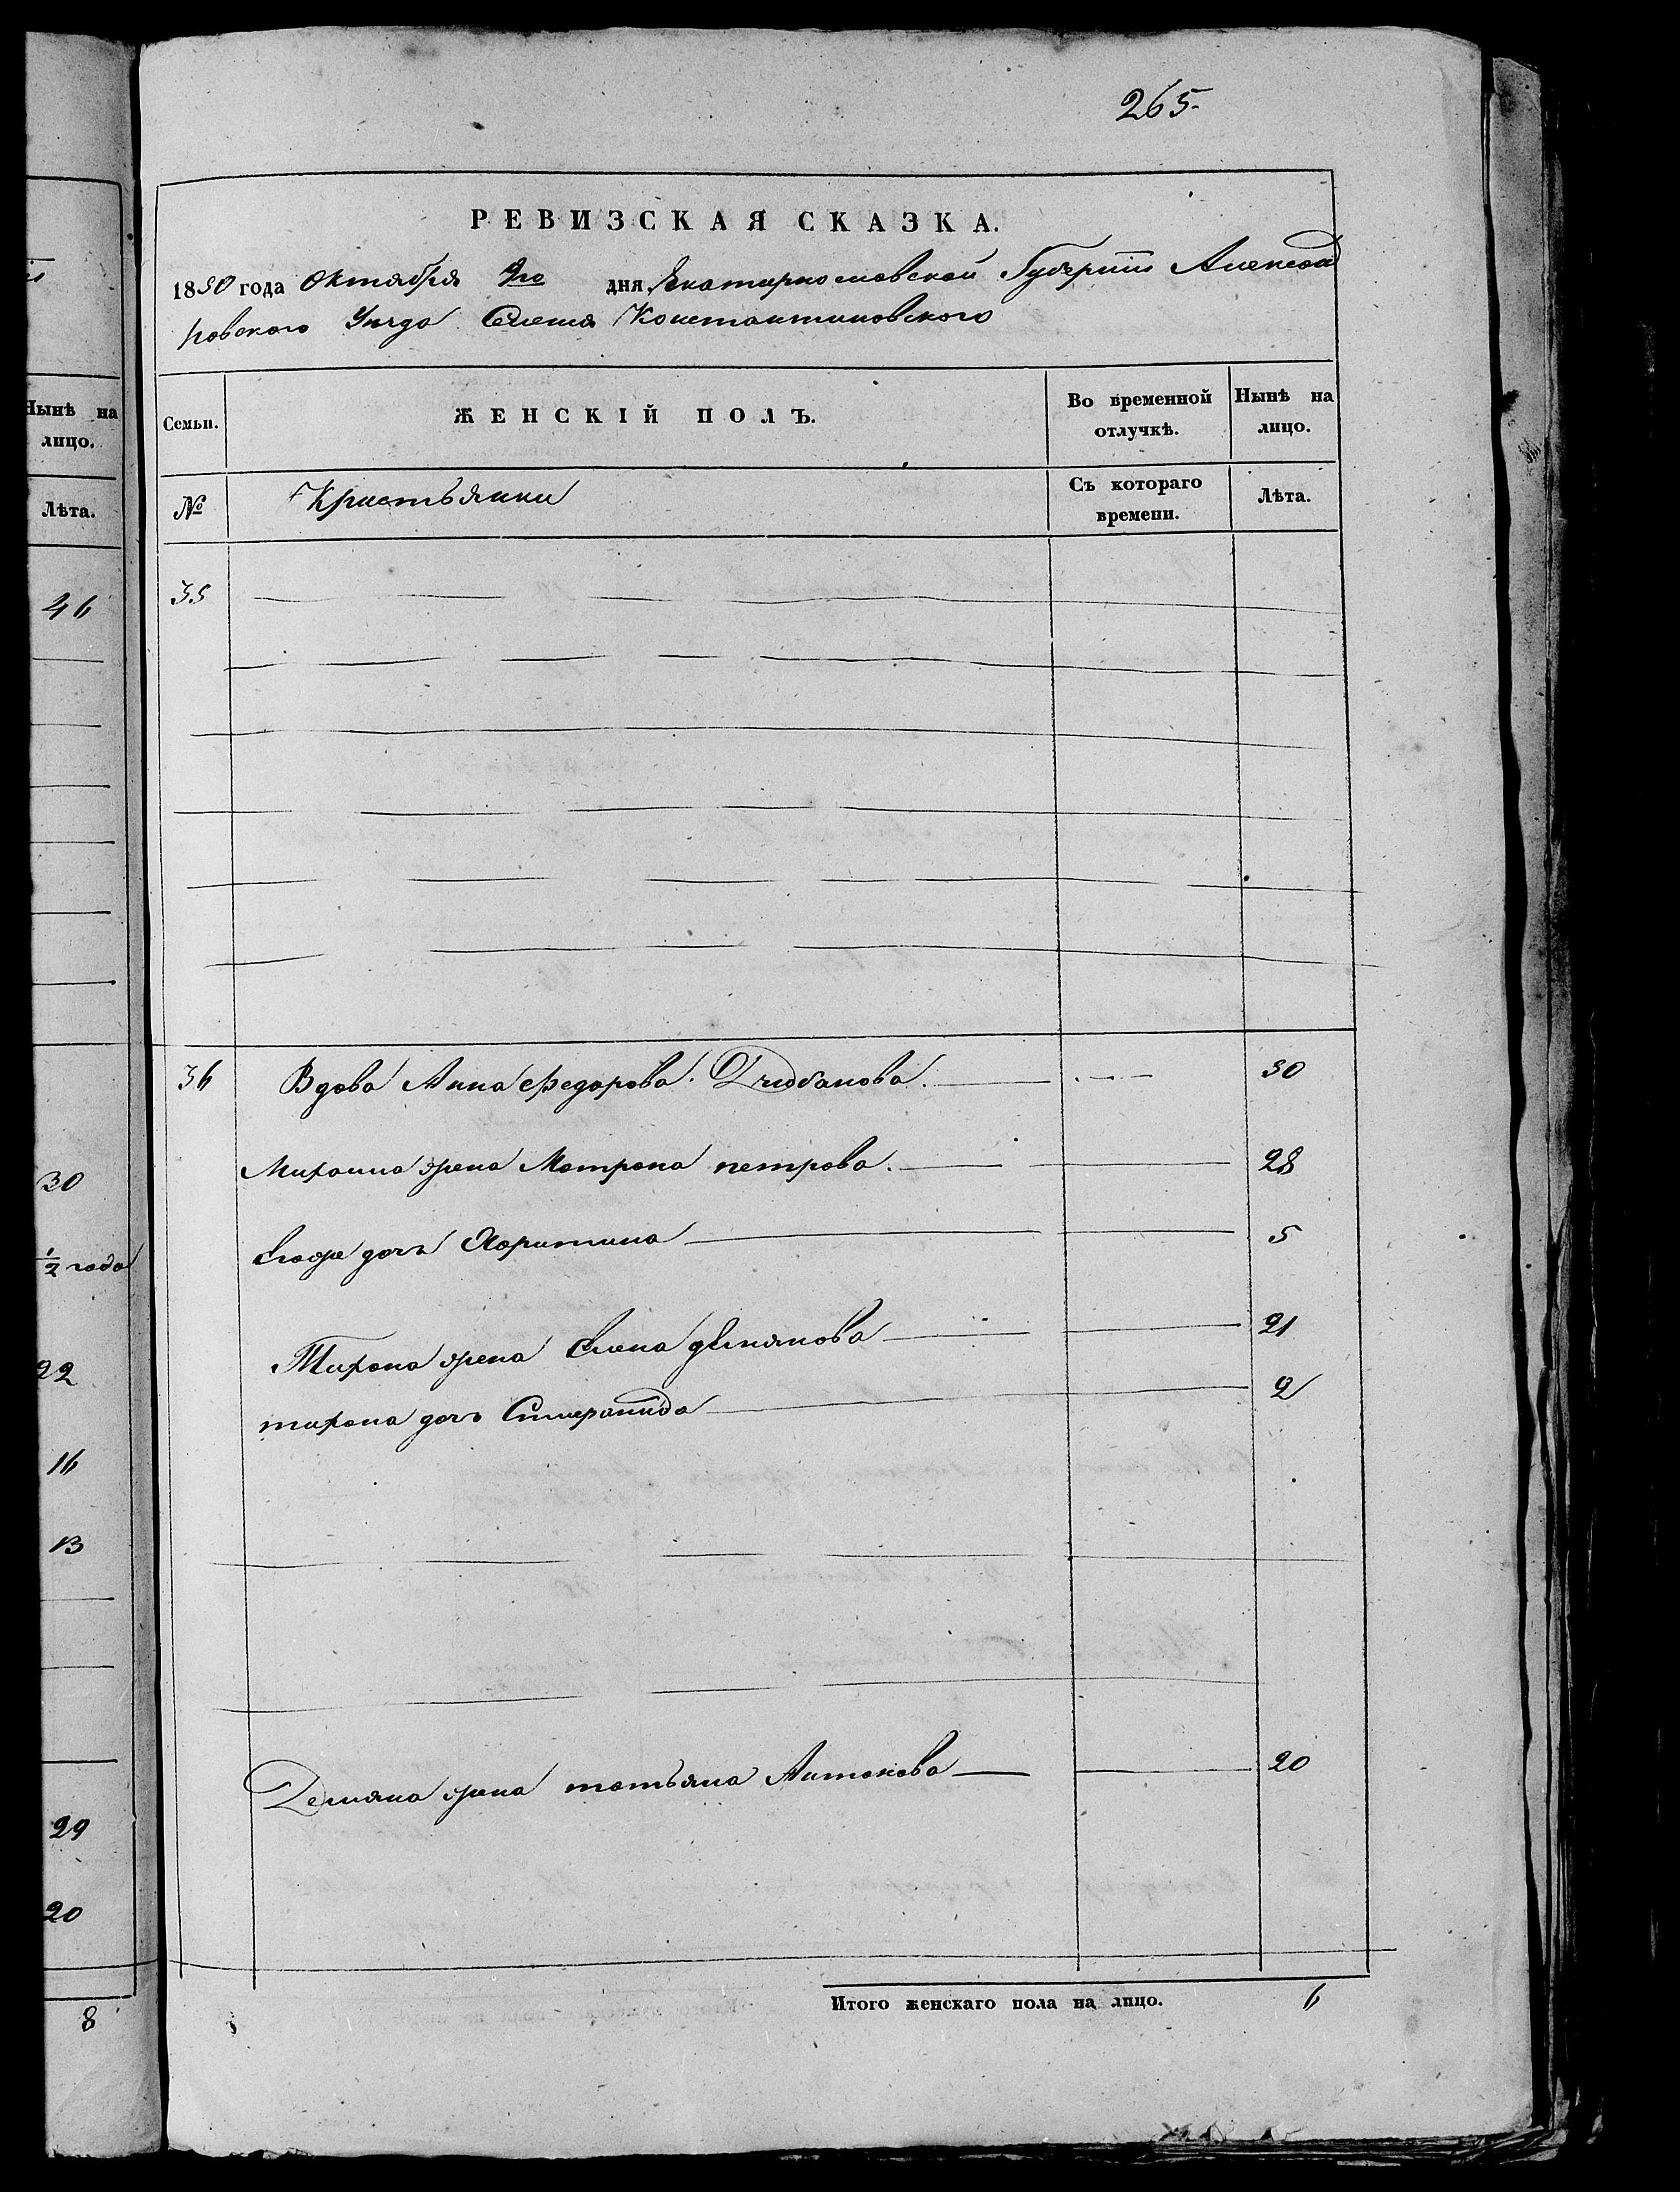 265.
РЕВИЗСКАЯ СКАЗКА.
1850 года Октября 9го дня, Екатеринославской Губерніи Александ
ровского Уезда Селенія Константиновского
Нынѣ на лицо.
Лѣта.
46
30
1/2 года
22
16
13
29
20
8
Семьи. ЖЕНСКІЙ ПОЛЪ. Во временной отлучкѣ. Нынѣ на лицо.
№ Крестьянки Съ котораго времени. Лѣта.
35
36 Вдова Анна Федорова. 50
Михаила жена Матрона петрова. 28
Егоже дочь Харитина 5
Тихона жена Елена демянова 21
тихона дочь 2
Демяна жена татьяна Антонова 20
Итого женскаго пола на лицо. 6